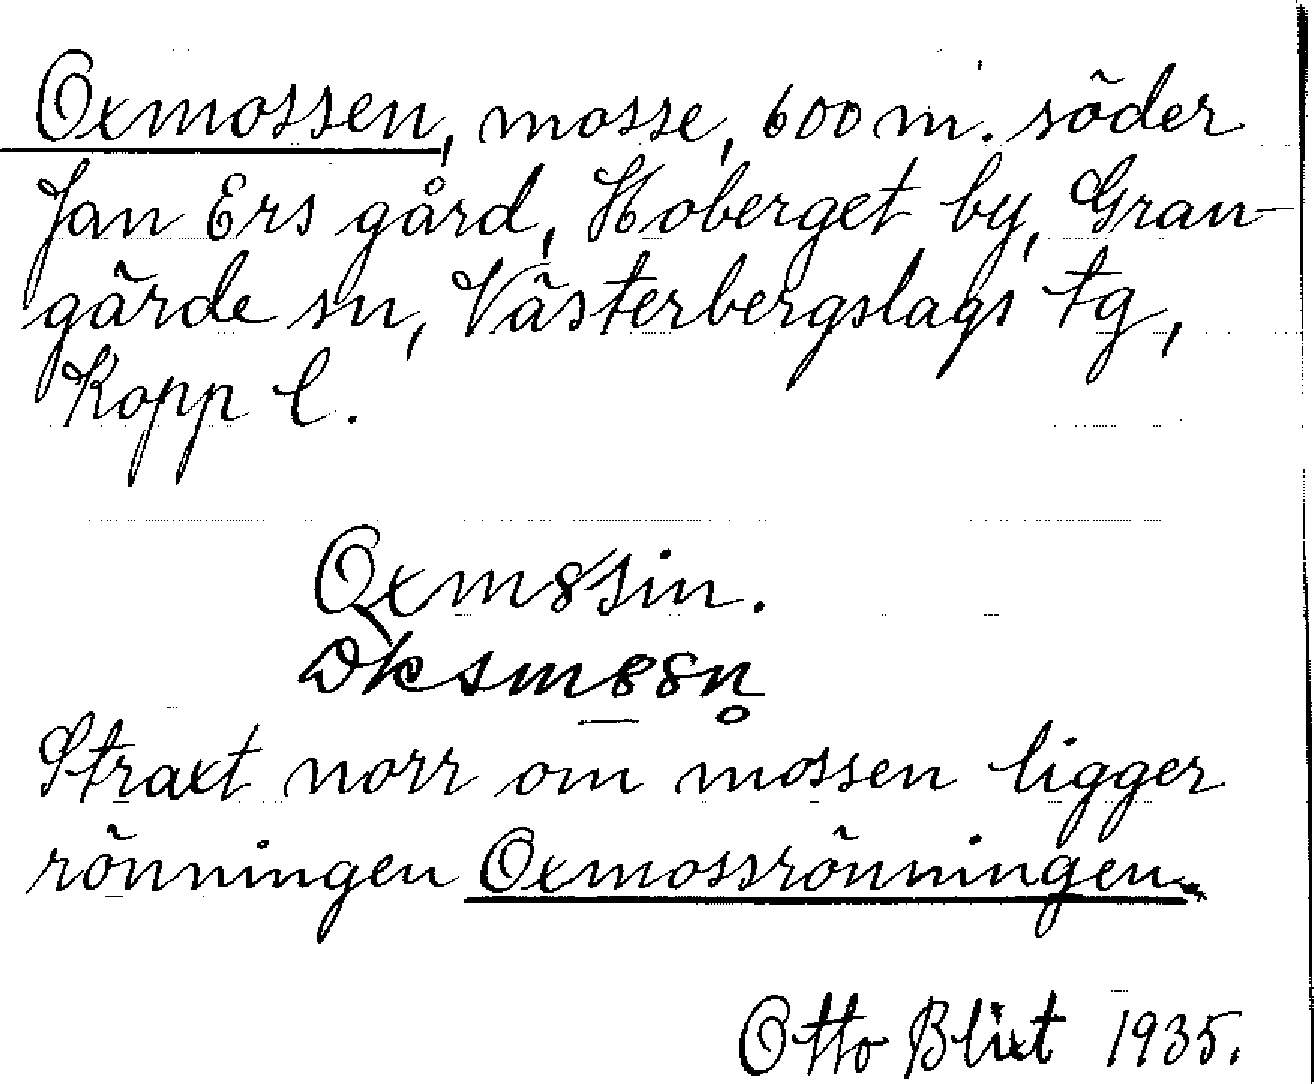 Oxmossen, mosse, 600 m. söder
Jan Ers gård, Hoberget by, Gran-
gärde sn, Västerbergslags tg,
Kopp l.
Oxm8sin.
Straxt norr om mossen ligger
rönningen Oxmossrönningen.
Otto Blixt 1935.